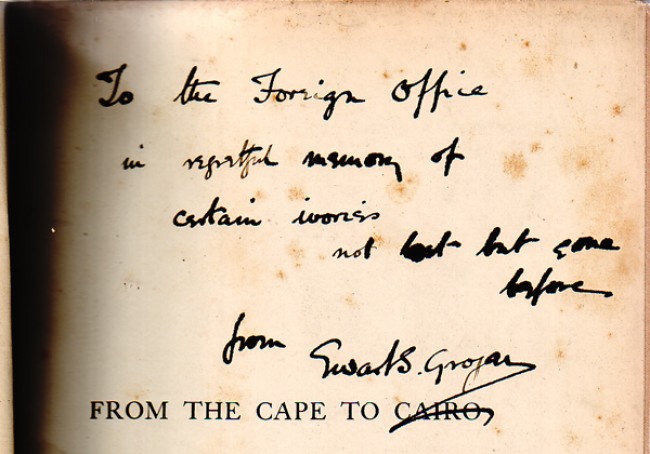 To the Foreign Office
in regretful memory of
certain ivories
not lost but gone
before
from Ewart S. Grogan
FROM THE CAPE TO CAIRO